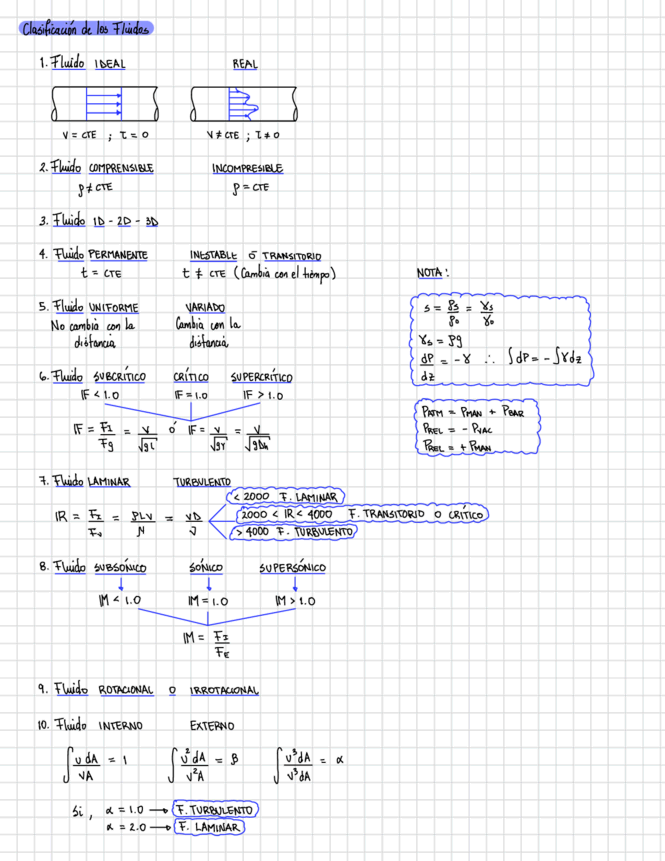 Clasificación de los Fluidos
1. Fluido IDEAL REAL
V = CTE ; τ = 0 V ≠ CTE ; τ ≠ 0
2. Fluido COMPRENSIBLE INCOMPRESIBLE
ρ ≠ CTE ρ = CTE
3. Fluido 1D - 2D - 3D
4. Fluido PERMANENTE INESTABLE ó TRANSITORIO
t = CTE t ≠ CTE (Cambia con el tiempo)
5. Fluido UNIFORME VARIADO
No cambia con la distancia
Cambia con la distancia
6. Fluido SUBCRÍTICO CRÍTICO SUPERCRÍTICO
IF < 1.0 IF = 1.0 IF > 1.0
IF = FI/Fg = V/√gL ó IF = V/√gY = V/√gDh
7. Fluido LAMINAR TURBULENTO
IR = FI/Fν = ρLV/μ = VD/ν
< 2000 F. LAMINAR
2000 < IR < 4000 F. TRANSITORIO O CRÍTICO
> 4000 F. TURBULENTO
8. Fluido SUBSÓNICO SÓNICO SUPERSÓNICO
IM < 1.0 IM = 1.0 IM > 1.0
IM = FI/FE
9. Fluido ROTACIONAL O IRROTACIONAL
10. Fluido INTERNO EXTERNO
∫ υ dA/VA = 1 ∫ υ² dA/V²A = β ∫ υ³ dA/V³ dA = α
Si, α = 1.0 → F. TURBULENTO
α = 2.0 → F. LAMINAR
NOTA:
s = ρs/ρo = γs/γo
γs = ρg
dP/dz = -γ ∴ ∫dP = -∫γdz
PATM = PMAN + PBAR
PREL = - PVAC
PREL = + PMAN